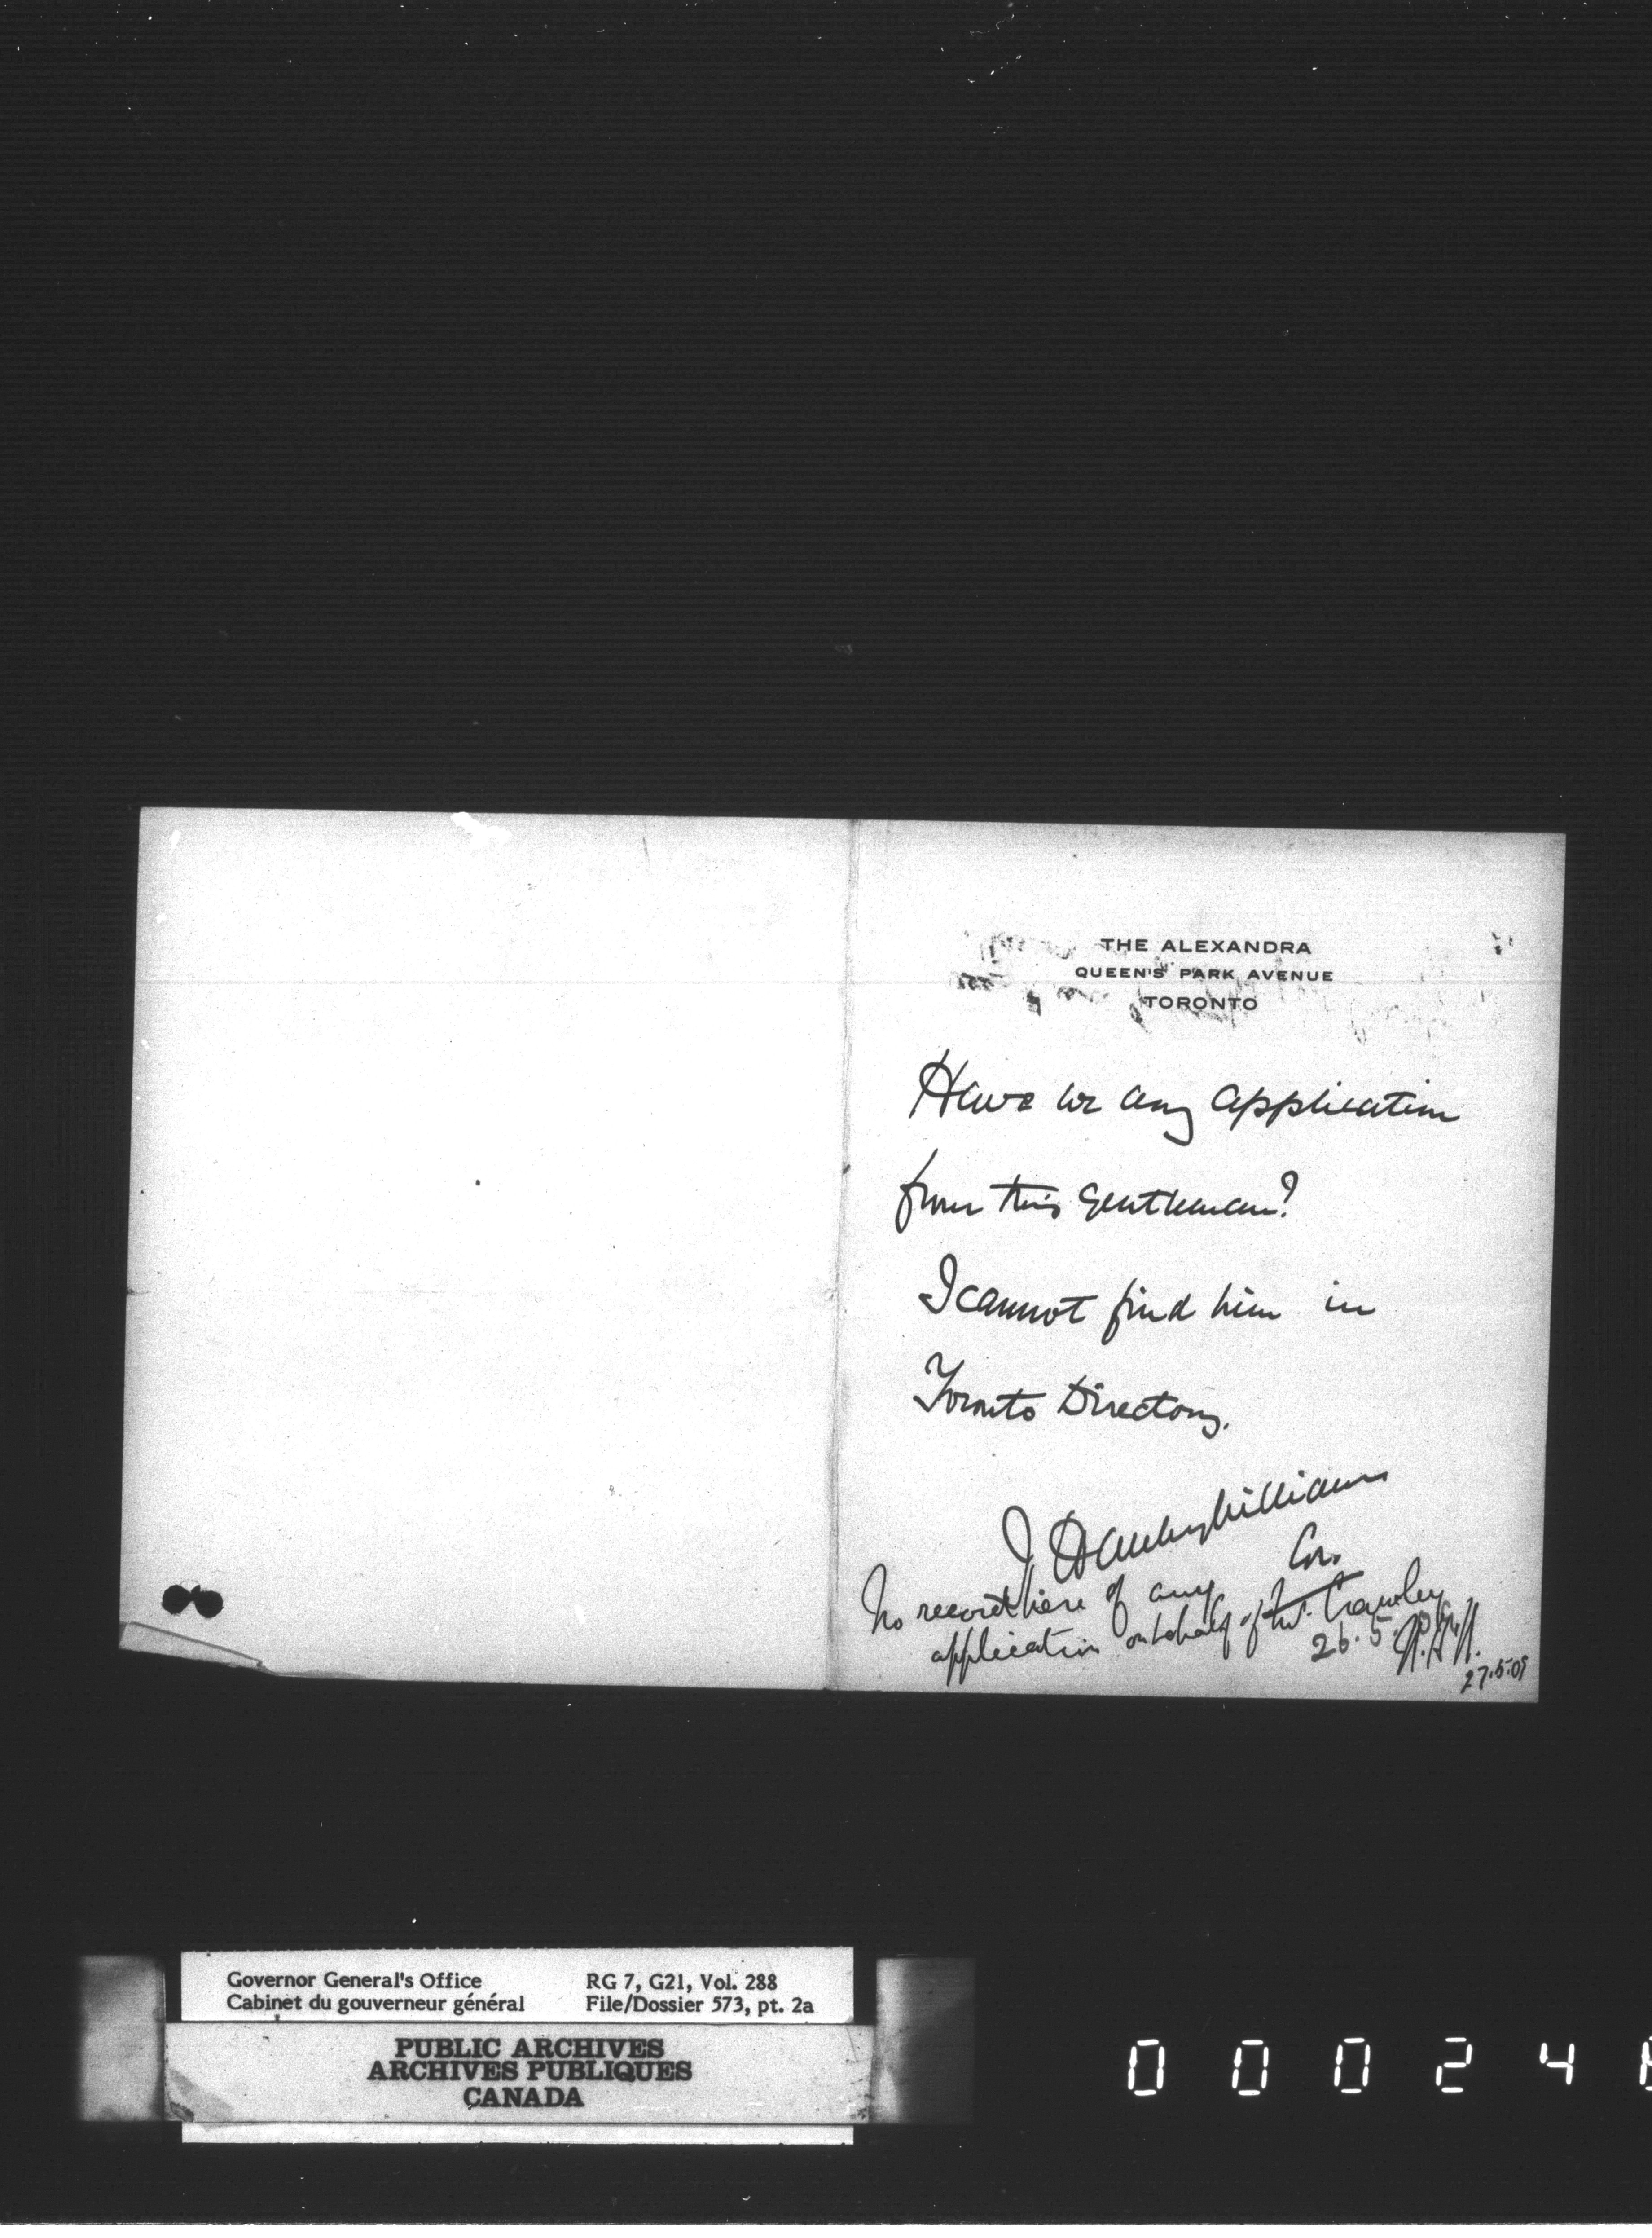 THE ALEXANDRA
QUEEN'S PARK AVENUE
TORONTO
Have we any application
from this gentleman?
I cannot find him in
Toronto Directory.
J Hanbury Williams
Col.
No record here of any
application on behalf of Mr. Crawley
26.5.
27.5.09
Governor General's Office RG 7, G21, Vol. 288
Cabinet du gouverneur général File/Dossier 573, pt. 2a
PUBLIC ARCHIVES
ARCHIVES PUBLIQUES
CANADA
0 0 0 2 4